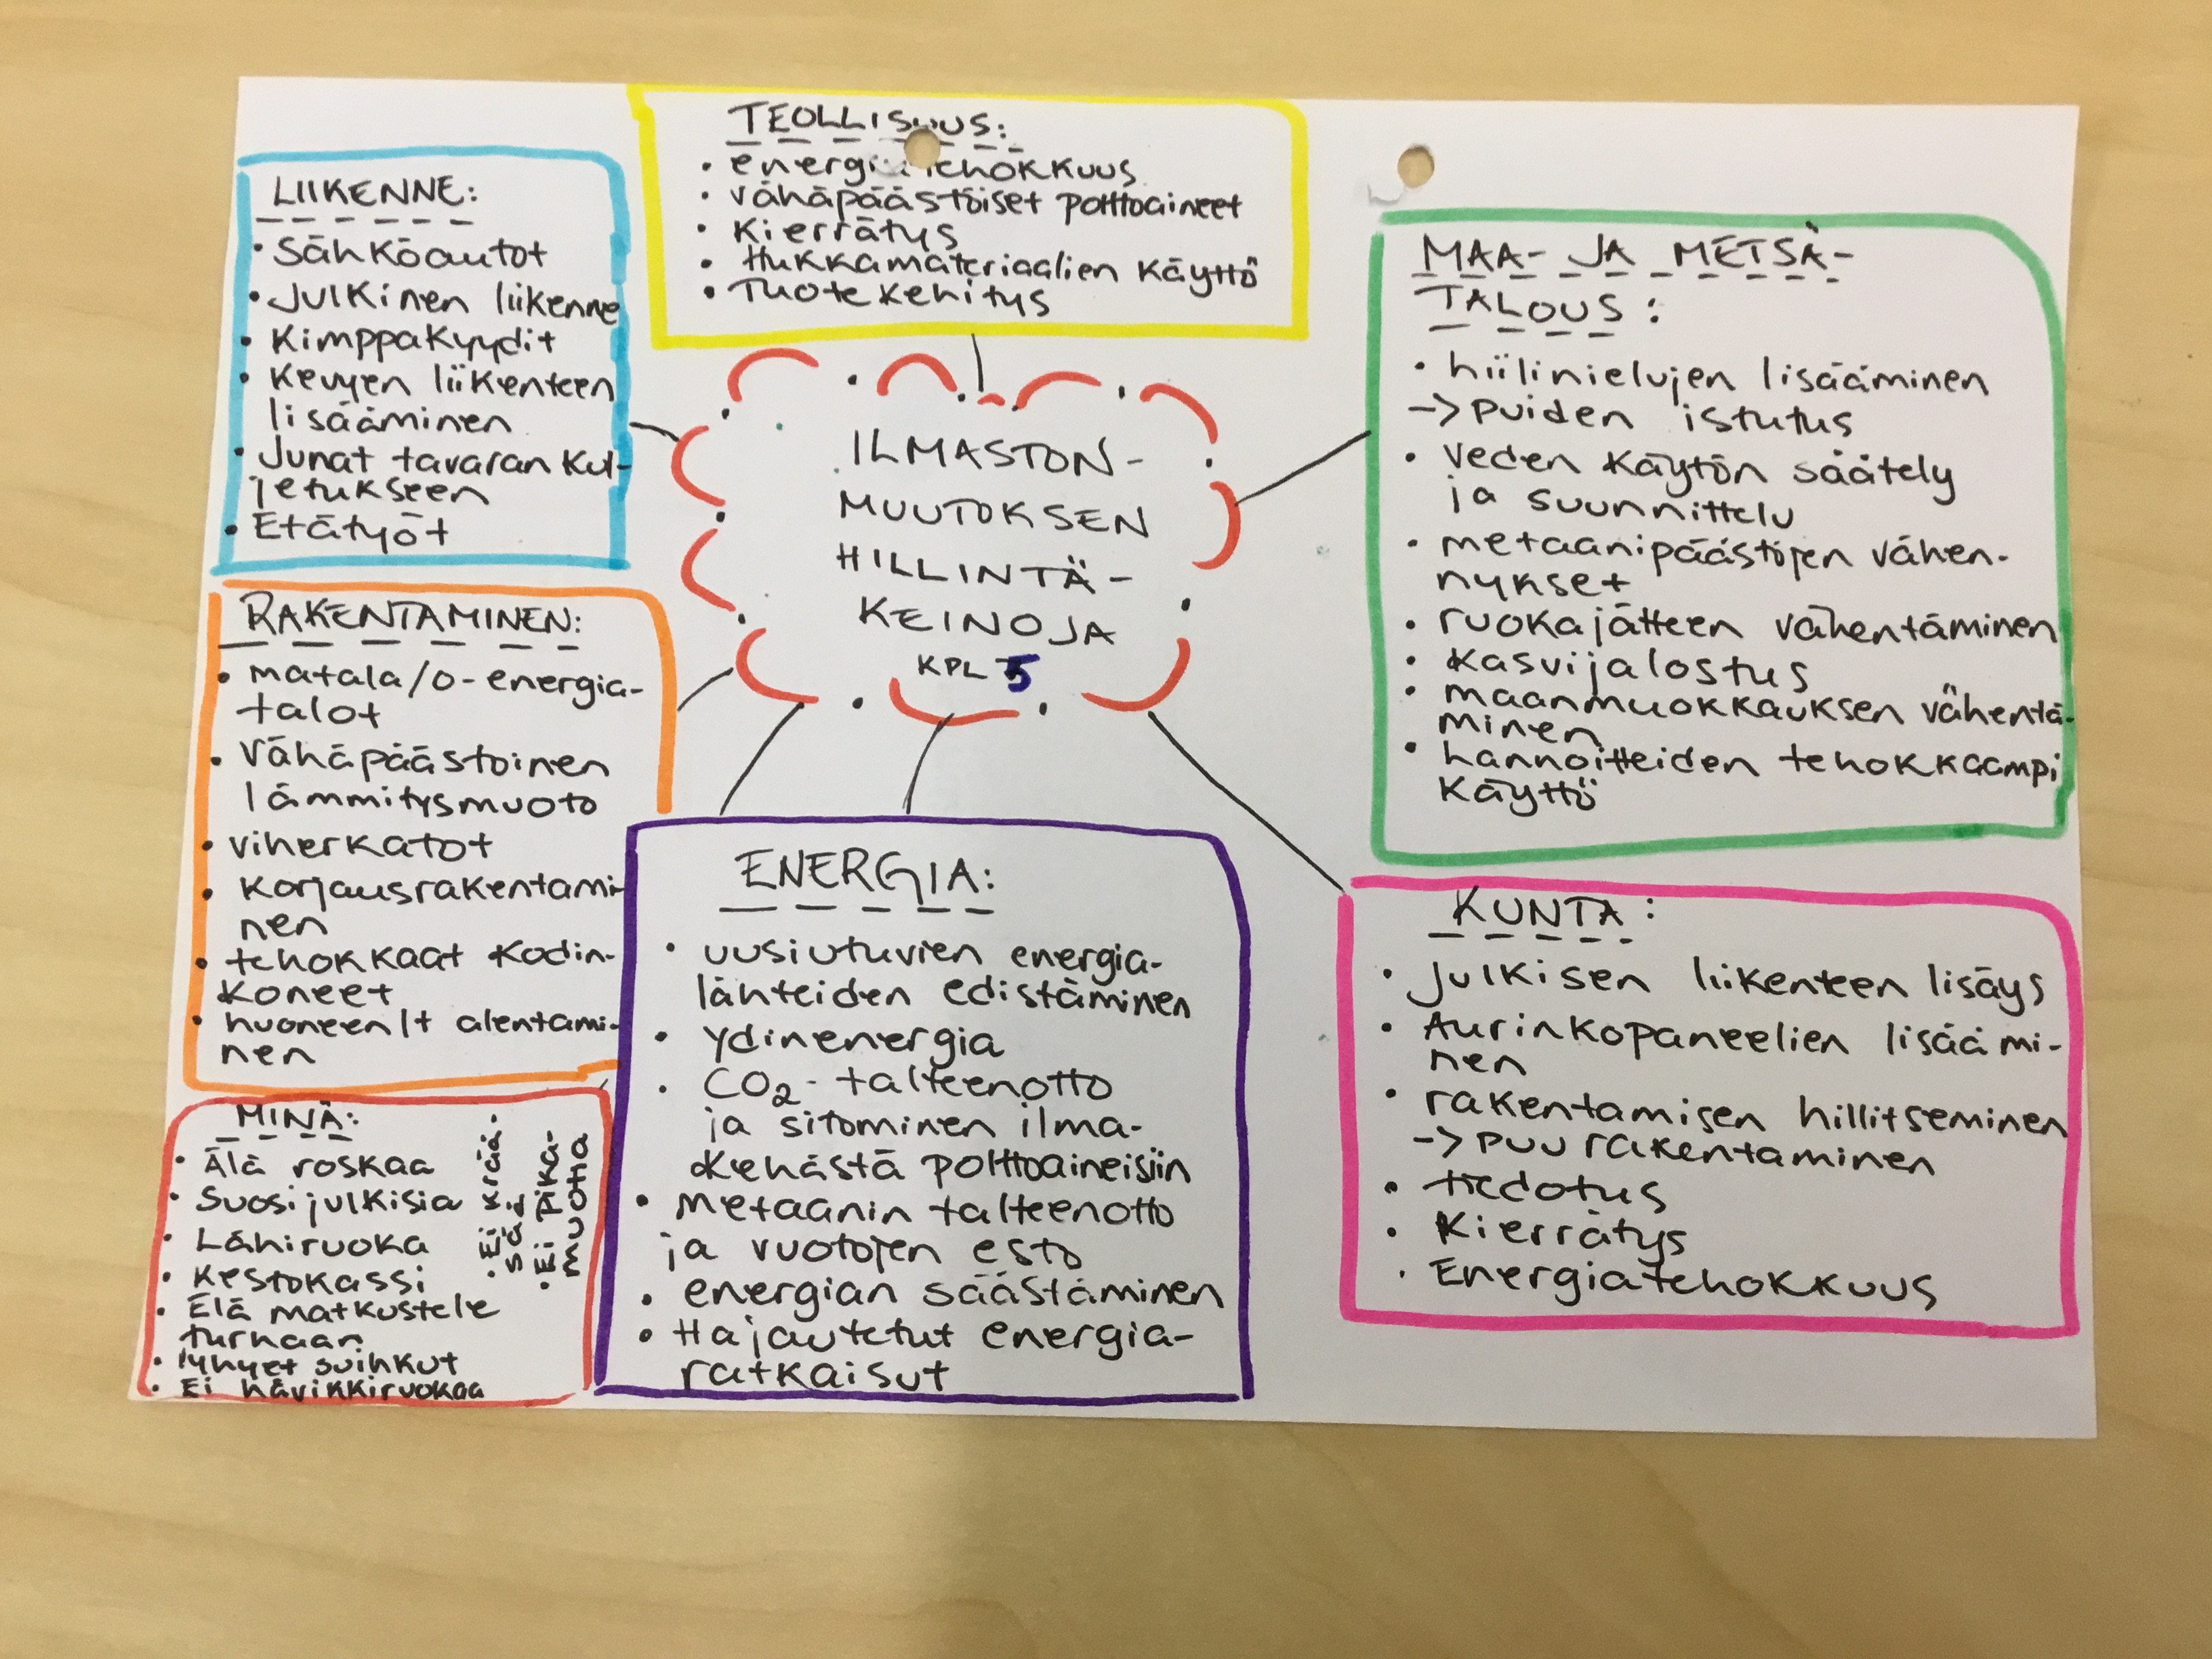 TEOLLISUUS:
• energiatehokkuus
• vähäpäästöiset polttoaineet
• Kierrätys
• Hukkamateriaalien käyttö
• Tuotekehitys
LIIKENNE:
• Sähköautot
• Julkinen liikenne
• Kimppakyydit
• Kevyen liikenteen
lisääminen
• Junat tavaran kul-
jetukseen
• Etätyöt
ILMASTON-
MUUTOKSEN
HILLINTÄ-
KEINOJA
KPL 5
MAA- JA METSÄ-
TALOUS:
• hiilinielujen lisääminen
-> puiden istutus
• veden käytön säätely
ja suunnittelu
• metaanipäästöjen vähen-
nykset
• ruokajätteen vähentäminen
• kasvijalostus
• maanmuokkauksen vähentä-
minen
• lannoitteiden tehokkaampi
käyttö
RAKENTAMINEN:
• matala/0-energia-
talot
• Vähäpäästöinen
lämmitysmuoto
• viherkatot
• korjausrakentami-
nen
• tehokkaat kodin-
koneet
• huoneen lt alentami-
nen
ENERGIA:
• uusiutuvien energia-
lähteiden edistäminen
• ydinenergia
• CO₂-talteenotto
ja sitominen ilma-
kehästä polttoaineisiin
• metaanin talteenotto
ja vuotojen esto
• energian säästäminen
• Hajautetut energia-
ratkaisut
KUNTA:
• Julkisen liikenteen lisäys
• Aurinkopaneelien lisäämi-
nen
• rakentamisen hillitseminen
-> puurakentaminen
• tiedotus
• Kierrätys
• Energiatehokkuus
MINÄ:
• Älä roskaa
• Suosi julkisia
• Lähiruoka
• Kestokassi
• Elä matkustele
turhaan
• lyhyet suihkut
• Ei hävikkiruokaa
• Ei
• Ei pika-
muotia